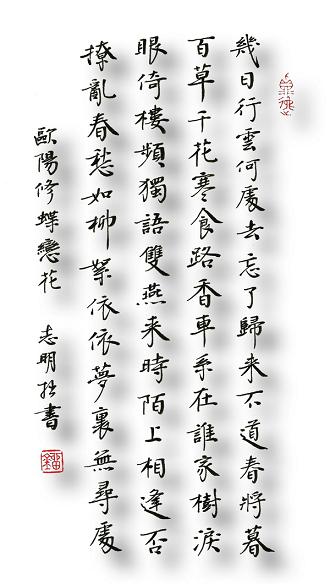 幾日行雲何處去忘了歸来不道春將暮
百草千花寒食路香車系在誰家樹淚
眼倚樓頻獨語雙燕来時陌上相逢否
撩亂春愁如柳絮依依夢裏無尋處
歐陽修蝶戀花 志明拙書